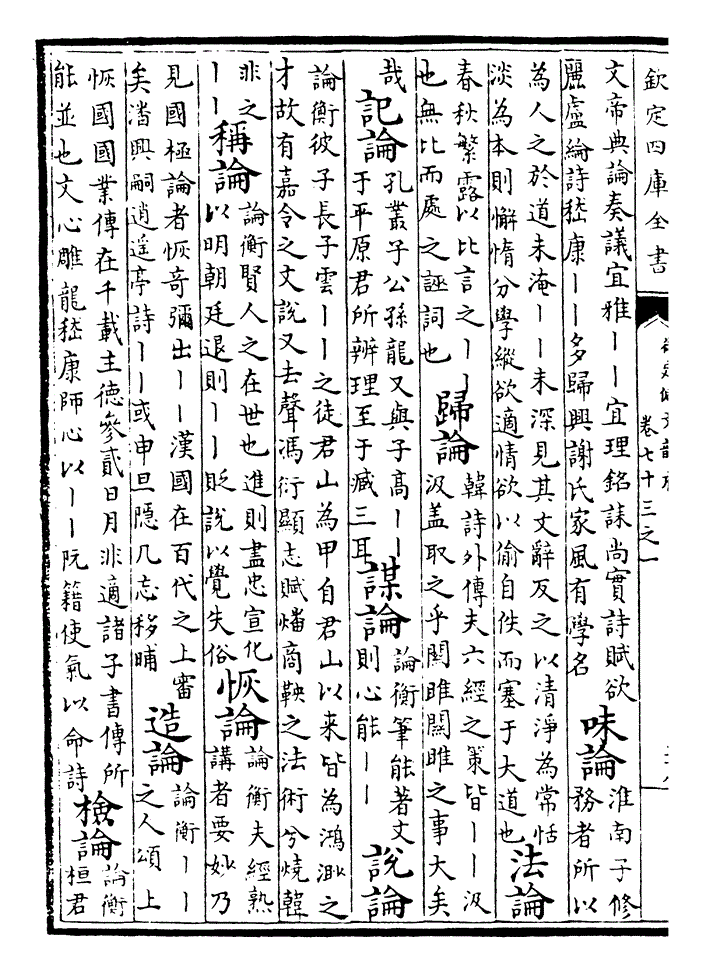 欽定四庫全書
卷七十三之一
文帝典論奏議宜雅丨丨宜理銘誄尚實詩賦欲
麗盧綸詩嵇康丨丨多歸興謝氏家風有學名
味論
淮南子修
務者所以
為人之於道未淹丨丨未深見其文辭反之以清淨為常恬
淡為本則懈惰分學縱欲適情欲以偷自佚而塞于大道也
法論
春秋繁露以比言之丨丨
也無比而處之誣詞也
歸論
韓詩外傳夫六經之策皆丨丨汲
汲盖取之乎闗雎闗雎之事大矣
哉
記論
孔叢子公孫龍又與子髙丨丨
于平原君所辨理至于臧三耳
謀論
論衡筆能著文
則心能丨丨
說論
論衡彼子長子雲丨丨之徒君山為甲自君山以来皆為鴻渺之
才故有嘉令之文說又去聲馮衍顯志賦燔商鞅之法術兮燒韓
非之
丨丨
稱論
論衡賢人之在世也進則盡忠宣化
以明朝廷退則丨丨貶說以覺失俗
恢論
論衡夫經熟
講者要妙乃
見國極論者恢竒彌出丨丨漢國在百代之上審
矣潘興嗣逍遥亭詩丨丨或申旦隱几忘移晡
造論
論衡丨丨
之人頌上
恢國國業傳在千載主徳參貳日月非適諸子書傳所
能並也文心雕龍嵇康師心以丨丨阮籍使氣以命詩
檢論
論衡
桓君